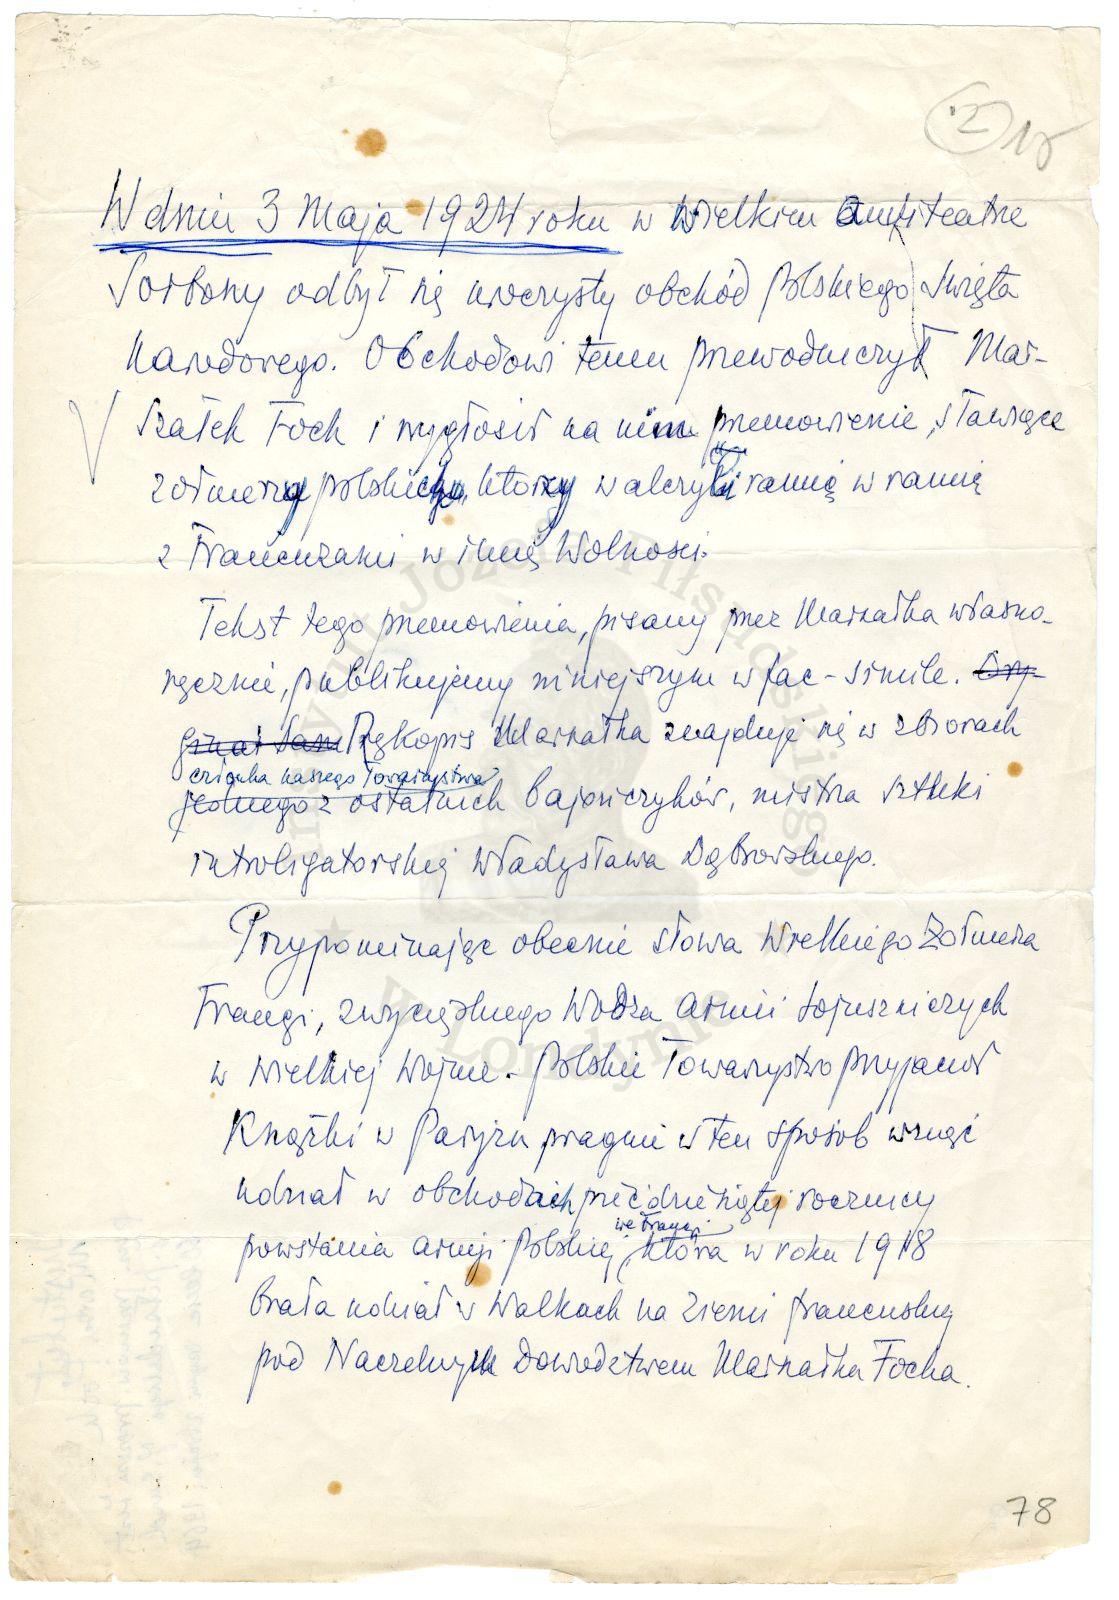 2 15
W dniu 3 Maja 1924 roku w Wielkim Amfiteatrze
Sorbony odbył się uroczysty obchód Polskiego Święta
Narodowego. Obchodowi temu przewodniczył Mar-
szałek Foch i wygłosił na nim przemówienie, sławiące
żołnierzy polskich, którzy walczyli ramię w ramię
z Francuzami w imię Wolności.
Tekst tego przemówienia, pisany przez Marszałka własno-
ręcznie, publikujemy niniejszym w fac-simile. Ory-
ginał sam Rękopis Marszałka znajduje się w zbiorach
członka naszego Towarzystwa
jednego z ostatnich bajończyków, mistrza sztuki
introligatorskiej Władysława Dąbrowskiego.
Przypominając obecnie słowa Wielkiego Żołnierza
Francji, zwycięskiego Wodza Armii Sojuszniczych
w Wielkiej Wojnie - Polskie Towarzystwo Przyjaciół
Książki w Paryżu pragnie w ten sposób wziąć
udział w obchodach pięćdziesiątej rocznicy
we Francji
powstania armji Polskiej, która w roku 1918
brała udział w Walkach na Ziemi francuskiej
pod Naczelnym Dowództwem Marszałka Focha.
78
Instytut Józefa Piłsudskiego
w Londynie